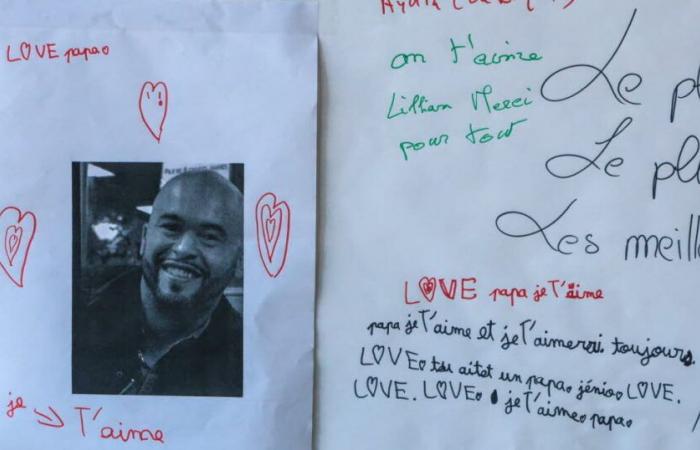 LOVE papa
je T'aime
on t'aime
Lillian Merci
pour tout
Le pl
Le plu
Les meill
LOVE papa je T'aime
papa je T'aime et je T'aimerri toujours.
LOVE. tu aitet un papa. jénio. LOVE.
LOVE. LOVE. je T'aime. papa.